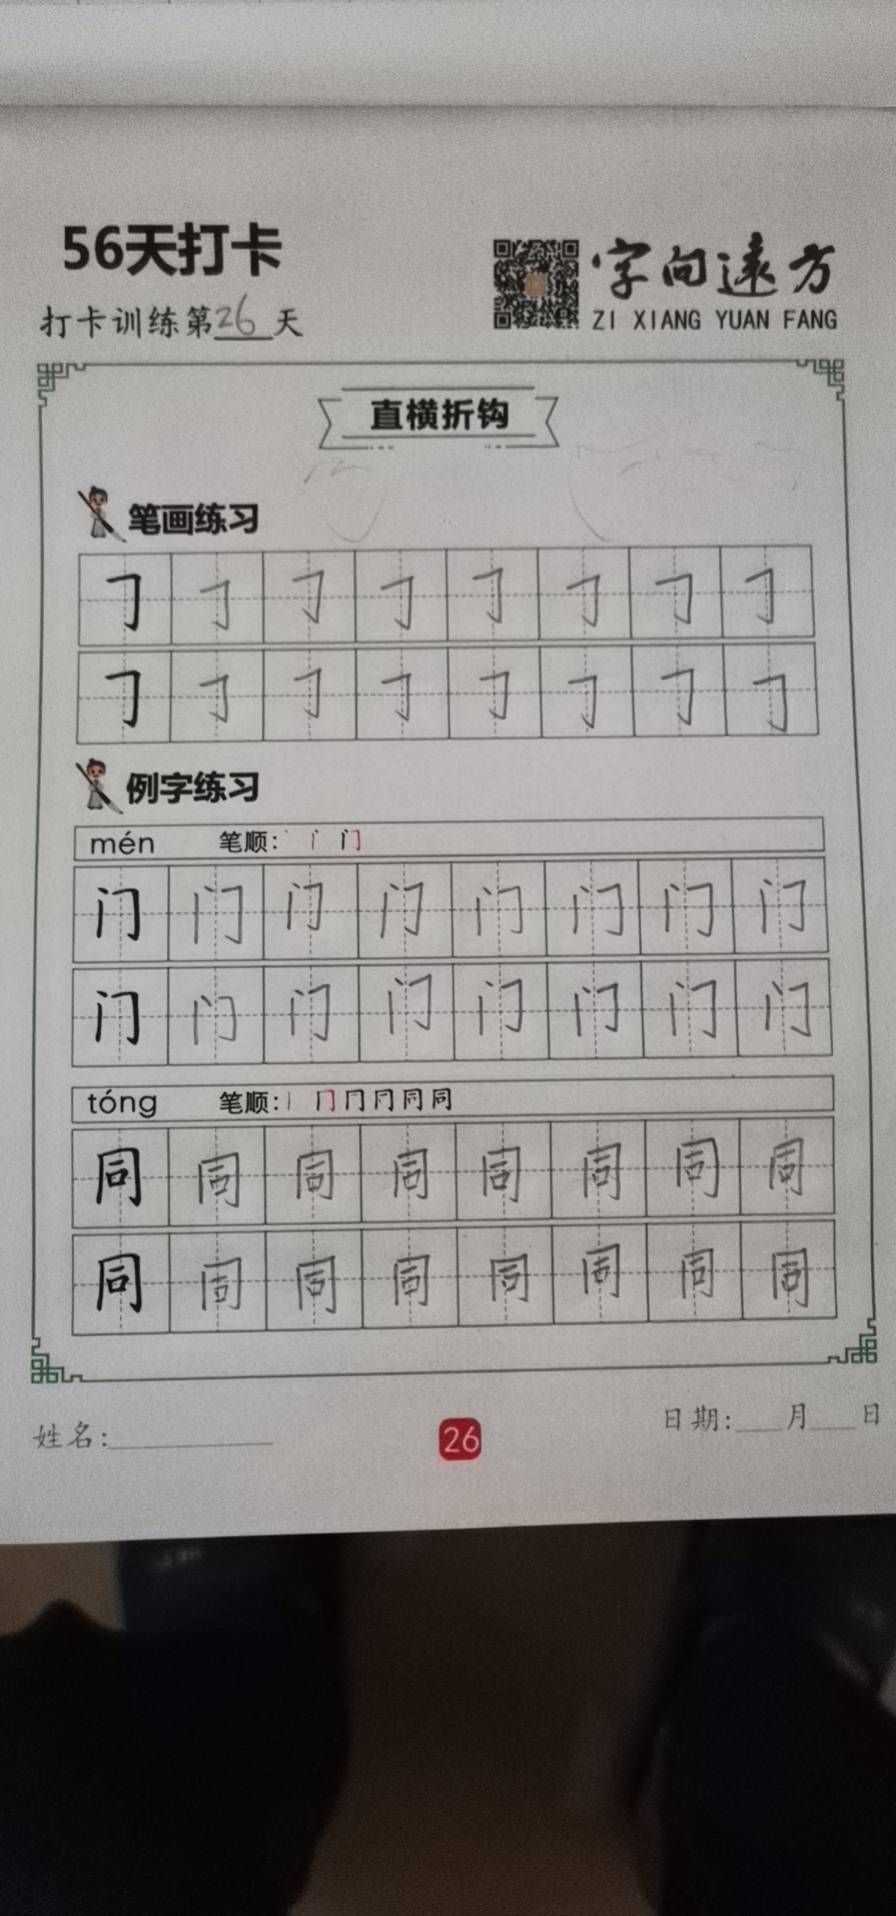 56天打卡
字向远方
打卡训练第26天
ZI XIANG YUAN FANG
直横折钩
笔画练习
㇆ ㇆ ㇆ ㇆ ㇆ ㇆ ㇆ ㇆
㇆ ㇆ ㇆ ㇆ ㇆ ㇆ ㇆ ㇆
例字练习
mén 笔顺: 丶 门
门 门 门 门 门 门 门 门
门 门 门 门 门 门 门 门
tóng 笔顺: 丨 冂 同
同 同 同 同 同 同 同 同
同 同 同 同 同 同 同 同
姓名:
26
日期: 月 日